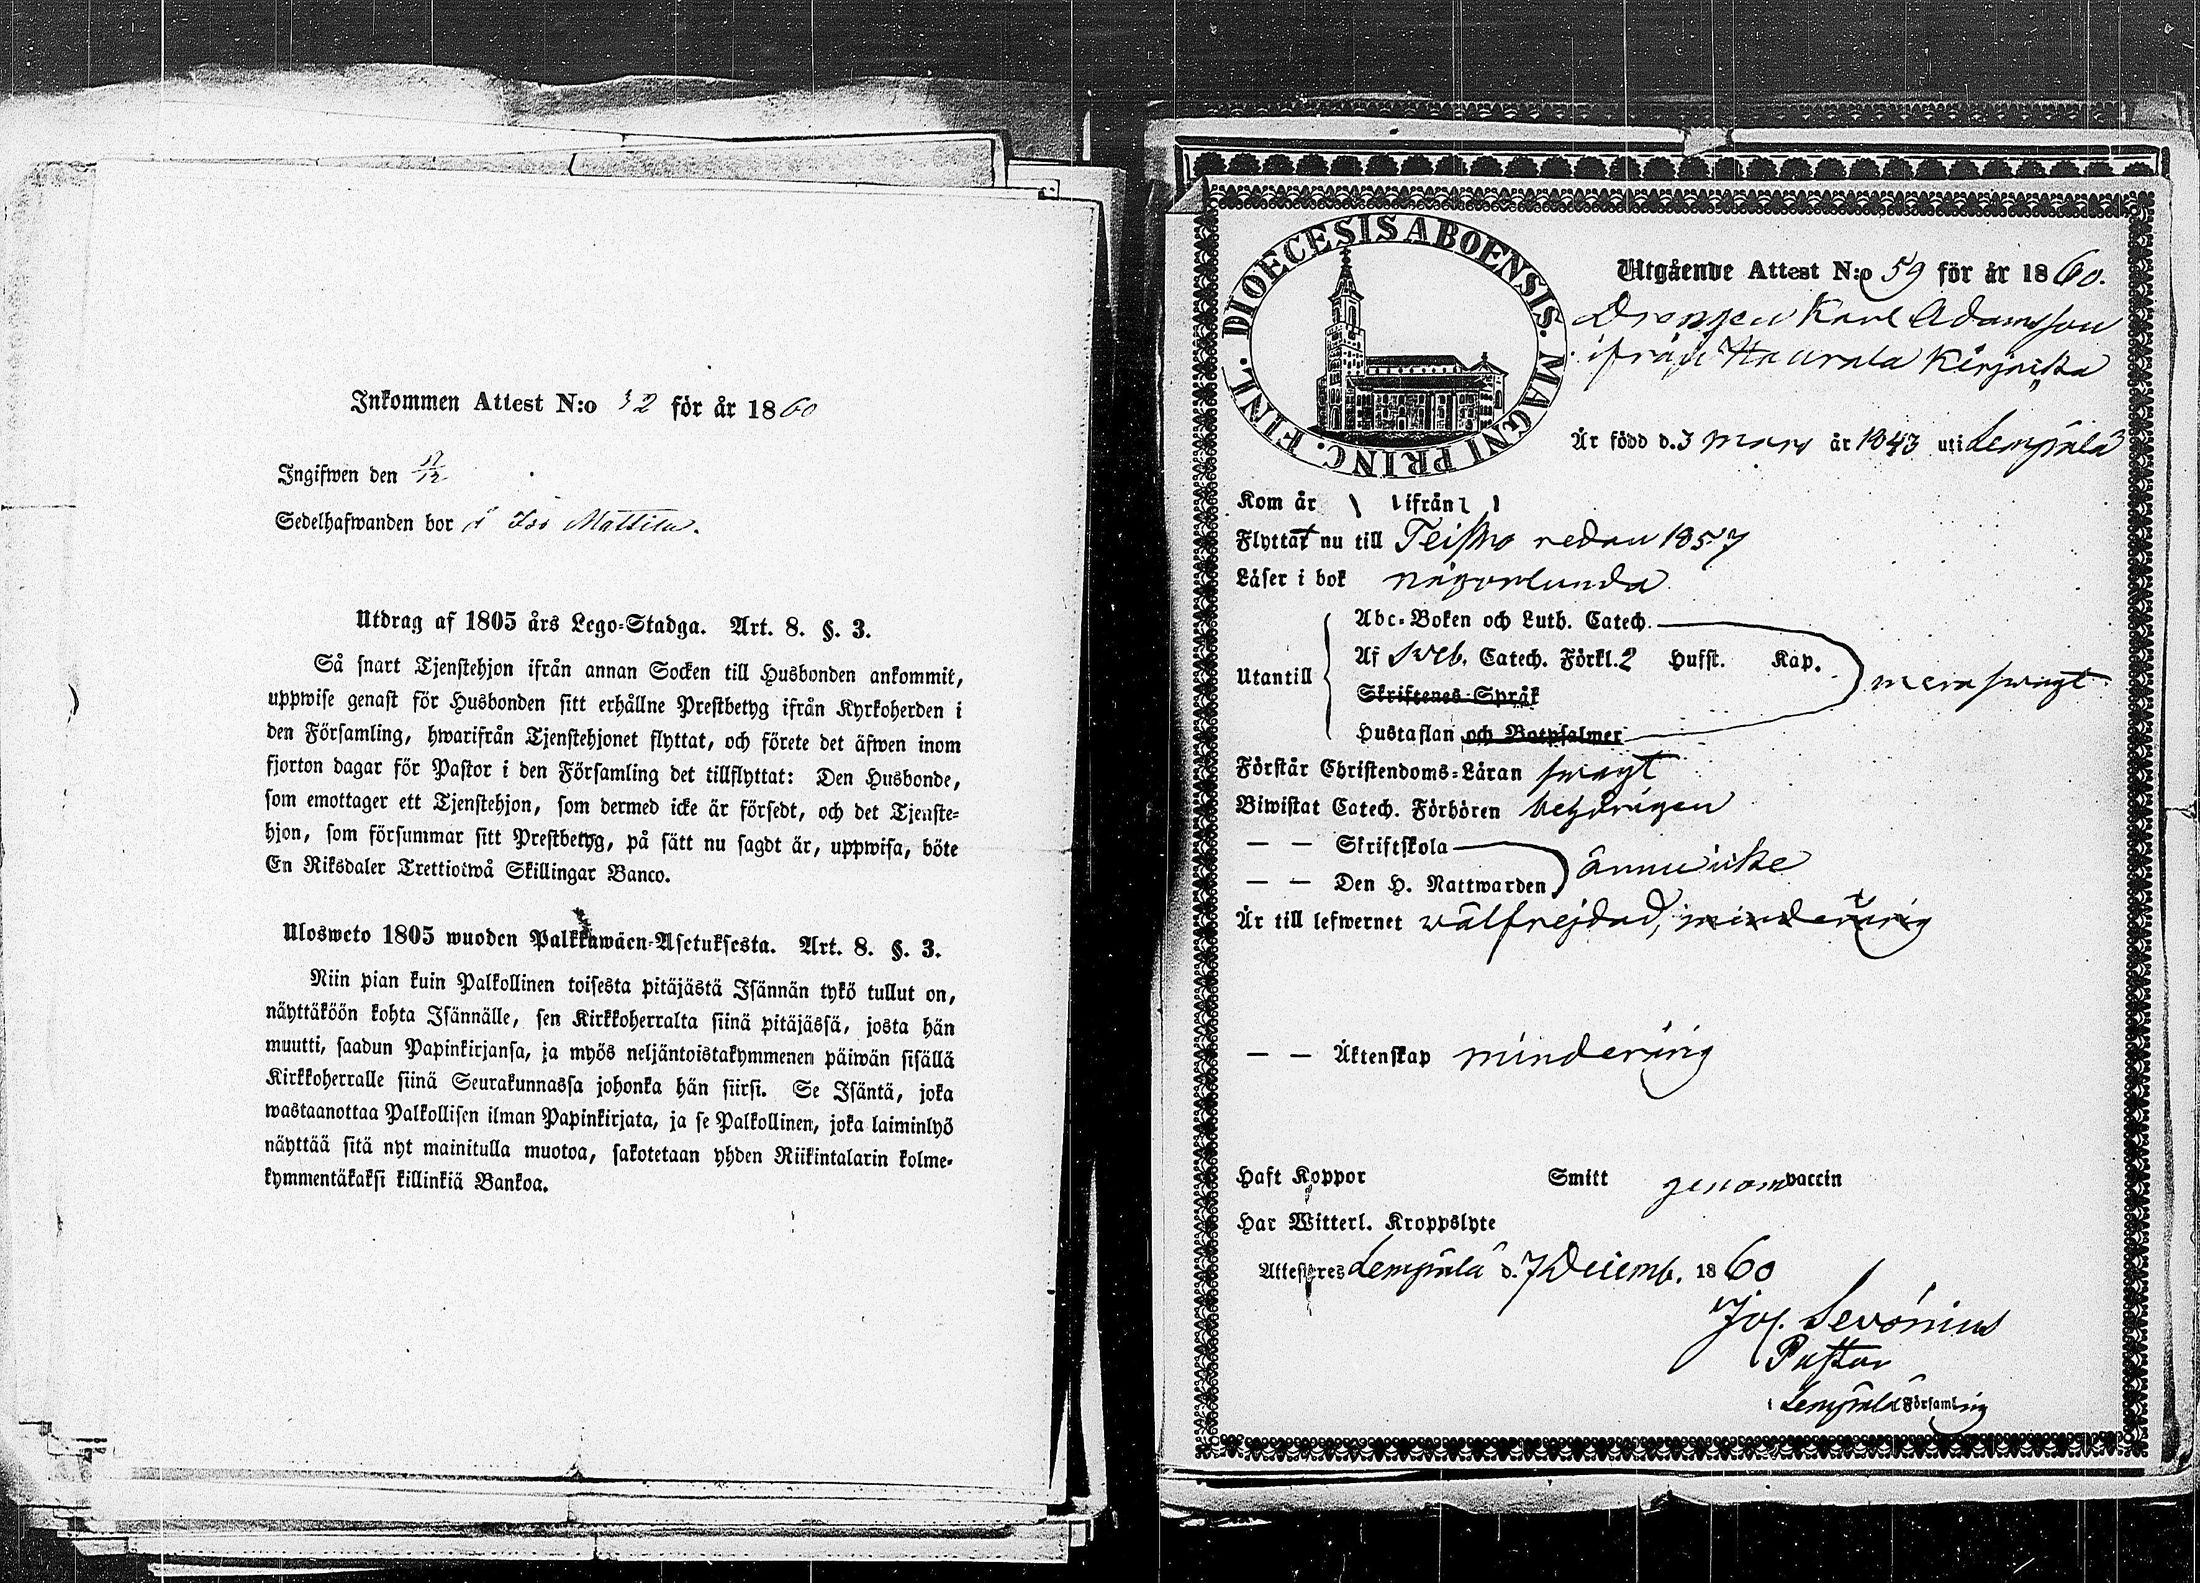 Inkommen Attest N:o 32 för år 1860
Ingifwen den 17/12
Sedelhafwanden bor å Iso Mattila.
Utdrag af 1805 års Lego-Stadga. Art. 8. §. 3.
Så snart Tjenstehjon ifrån annan Socken till Husbonden ankommit,
uppwise genast för Husbonden sitt erhållne Prestbetyg ifrån Kyrkoherden i
den Församling, hwarifrån Tjenstehjonet flyttat, och förete det äfwen inom
fjorton dagar för Pastor i den Församling det tillflyttat: Den Husbonde,
som emottager ett Tjenstehjon, som dermed icke är försedt, och det Tjenste-
hjon, som försummar sitt Prestbetyg, på sätt nu sagdt är, uppwisa, böte
En Riksdaler Trettiotwå Skillingar Banco.
Ulosweto 1805 wuoden Palkkawäen-Asetuksesta. Art. 8. §. 3.
Niin pian kuin Palkollinen toisesta pitäjästä Isännän tykö tullut on,
näyttäköön kohta Isännälle, sen Kirkkoherralta siinä pitäjässä, josta hän
muutti, saadun Papinkirjansa, ja myös neljäntoistakymmenen päiwän sisällä
Kirkkoherralle siinä Seurakunnassa johonka hän siirsi. Se Isäntä, joka
wastaanottaa Palkollisen ilman Papinkirjata, ja se Palkollinen, joka laiminlyö
näyttää sitä nyt mainitulla muotoa, sakotetaan yhden Riikintalarin kolme-
kymmentäkaksi killinkiä Bankoa.
DIOECESIS ABOENSIS. MAGNI PRINC. FINL.
Utgående Attest N:o 59 för år 1860.
Drengen Karl Adamsson
ifrån Haurala Kirjaska
Är född d. 3 Mars år 1843 uti Lempälä
Kom år ifrån
Flyttat nu till Teisko redan 1857
Läser i bok någorlunda
Utantill
Abc-Boken och Luth. Catech.
Af Sveb. Catech. Förkl. 2 Hufst. Kap.
Skriftenes Språk
Hustaflan och Botpsalmer
mera swagt
Förstår Christendoms-Läran swagt
Biwistat Catech. Förhören behörigen
— — Skriftskola
— — Den H. Nattwarden
ännu icke
Är till lefwernet wälfrejdad, minderårig
— — Äktenskap minderårig
Haft Koppor Smitt genom vaccin
Har Witterl. Kroppslyte
Attesteres Lempälä d. 7 Decemb. 1860
Jos. Sevonius
Pastor
i Lempälä Församling